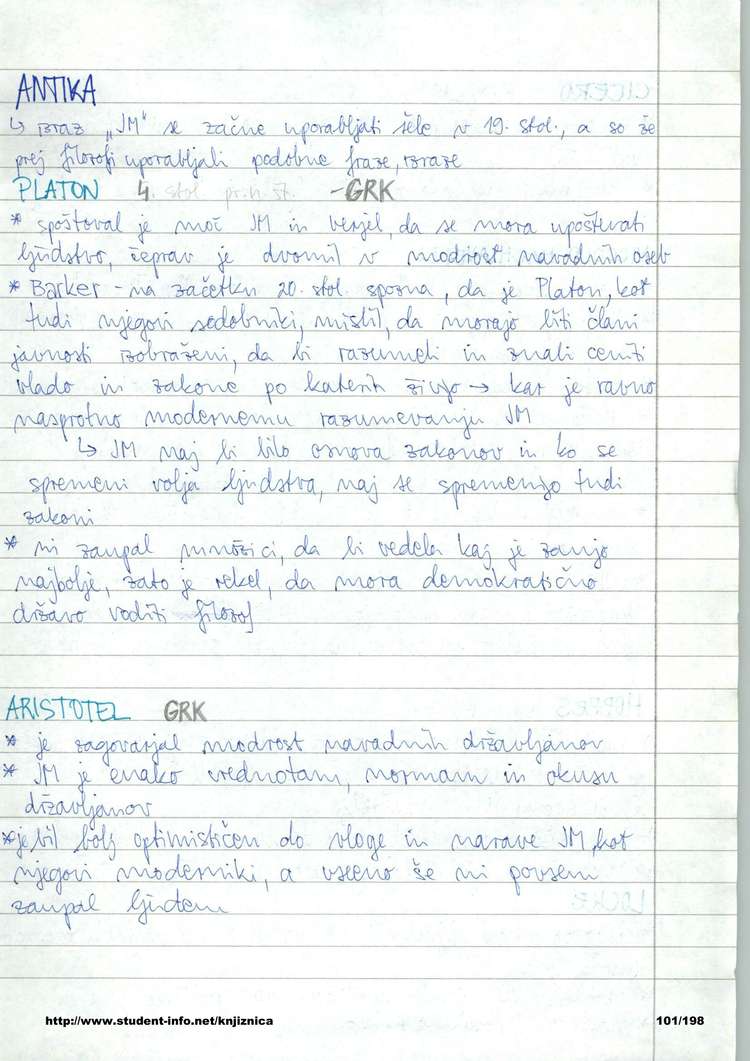 ANTIKA
↳ izraz „JM" se začne uporabljati šele v 19. stol., a so že
prej filozofi uporabljali podobne fraze, izraze
PLATON 4. stol. pr. n. št. - GRK
* spoštoval je moč JM in verjel, da se mora upoštevati
ljudstvo, čeprav je dvomil v modrost navadnih oseb
* Barker - na začetku 20. stol. spozna, da je Platon, kot
tudi njegovi sodobniki, mislil, da morajo biti člani
javnosti izobraženi, da bi razumeli in znali ceniti
vlado in zakone po katerih živijo → kar je ravno
nasprotno modernemu razumevanju JM
↳ JM naj bi bilo osnova zakonov in ko se
spremeni volja ljudstva, naj se spremenijo tudi
zakoni
* ni zaupal množici, da bi vedela kaj je zanjo
najbolje, zato je rekel, da mora demokratično
državo voditi filozof
ARISTOTEL GRK
* je zagovarjal modrost navadnih državljanov
* JM je enako vrednotam, normam in okusu
državljanov
* je bil bolj optimističen do vloge in narave JM, kot
njegovi moderniki, a vseeno še ni povsem
zaupal ljudem
http://www.student-info.net/knjiznica 101/198